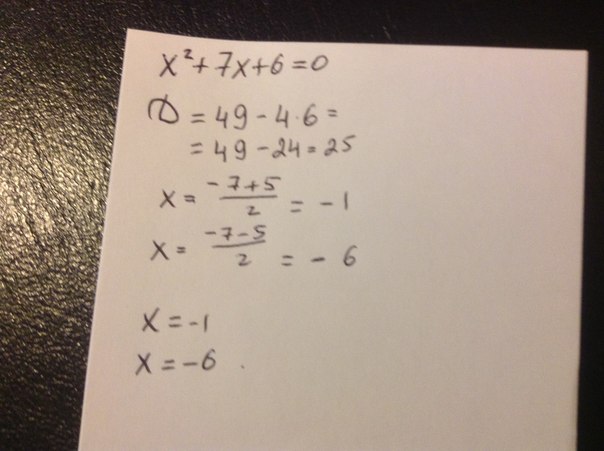 x²+7x+6=0
D = 49 - 4·6 =
= 49 - 24 = 25
x = \frac{-7+5}{2} = -1
x = \frac{-7-5}{2} = -6
x = -1
x = -6 .